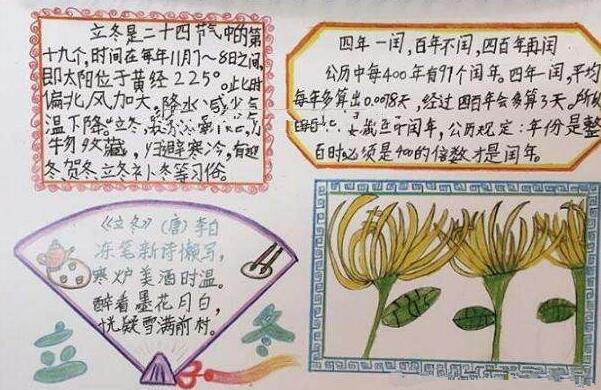 立冬是二十四节气中的第
十九个，时间在每年11月7～8日之间，
即太阳位于黄经225°。此时
偏北风加大，降水减少气
温下降。立冬，表示
物收藏，归避寒冷，有迎
冬、贺冬、立冬补冬等习俗。
四年一闰，百年不闰，四百年再闰
公历中每400年有97个闰年。四年一闰，平均
每年多算出0.0078天，经过四百年会多算3天。所以
闰年，公历规定：年份是整
百时必须是400的倍数才是闰年。
《立冬》（唐）李白
冻笔新诗懒写，
寒炉美酒时温。
醉看墨花月白，
恍疑雪满前村。
立
冬